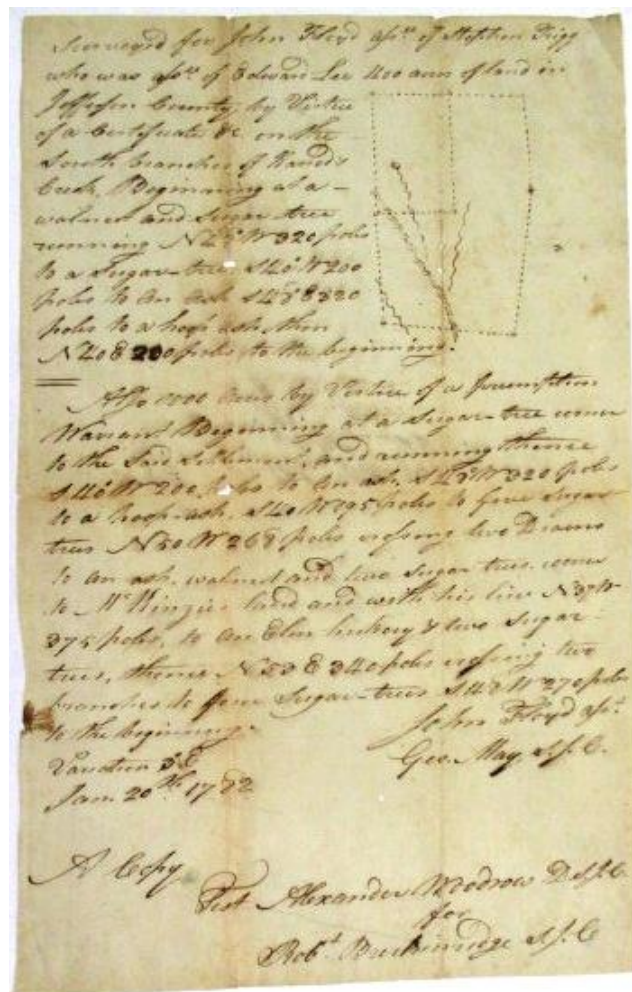 Surveyed for John Floyd assee of Stephen Trigg
who was assee of Edward Lee 400 acres of land in
Jefferson County by Virtue
of a Certificate &c on the
South branches of
Creek. Beginning at a
walnut and Sugar tree
running N48W 320 poles
to a Sugar-tree S40W 200
poles to an ash S48E 320
poles to a hoop ash, then
N40E 200 poles to the beginning.
Also 1000 acres by Virtue of a Preemption
Warrant Beginning at a Sugar-tree corner
to the said Settlement, and running thence
S40W 200 poles to an ash, 320 poles
to a hoop-ash, S40W 195 poles to five Sugar
trees N50W 268 poles crossing two Drains
to an ash, walnut and two Sugar trees, corner
to McKinzies land and with his line N37W
375 poles, to an Elm hickory & two Sugar-
trees, thence N53E 340 poles crossing two
branches to four Sugar-trees 270 poles
to the beginning.
John Floyd
Variation
Geo. May S.J.C.
Jan. 20th 1782
A Copy
Test Alexander Woodrow D.S.J.C.
for
Robt. Breckinridge S.J.C.